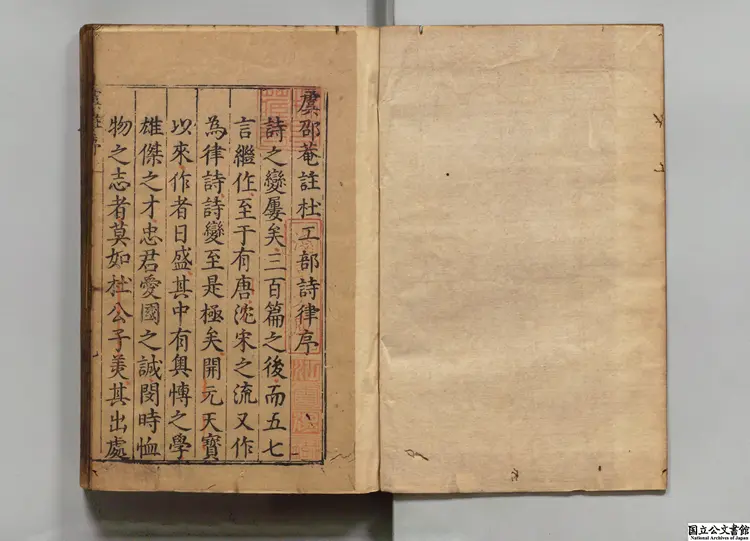 虞邵菴註杜工部詩律序
詩之變屢矣三百篇之後而五七
言繼作至于有唐沈宋之流又作
為律詩詩變至是極矣開元天寶
以來作者日盛其中有奧慱之學
雄傑之才忠君愛國之誠閔時恤
物之志者莫如杜公子羙其出處
国立公文書館
National Archives of Japan